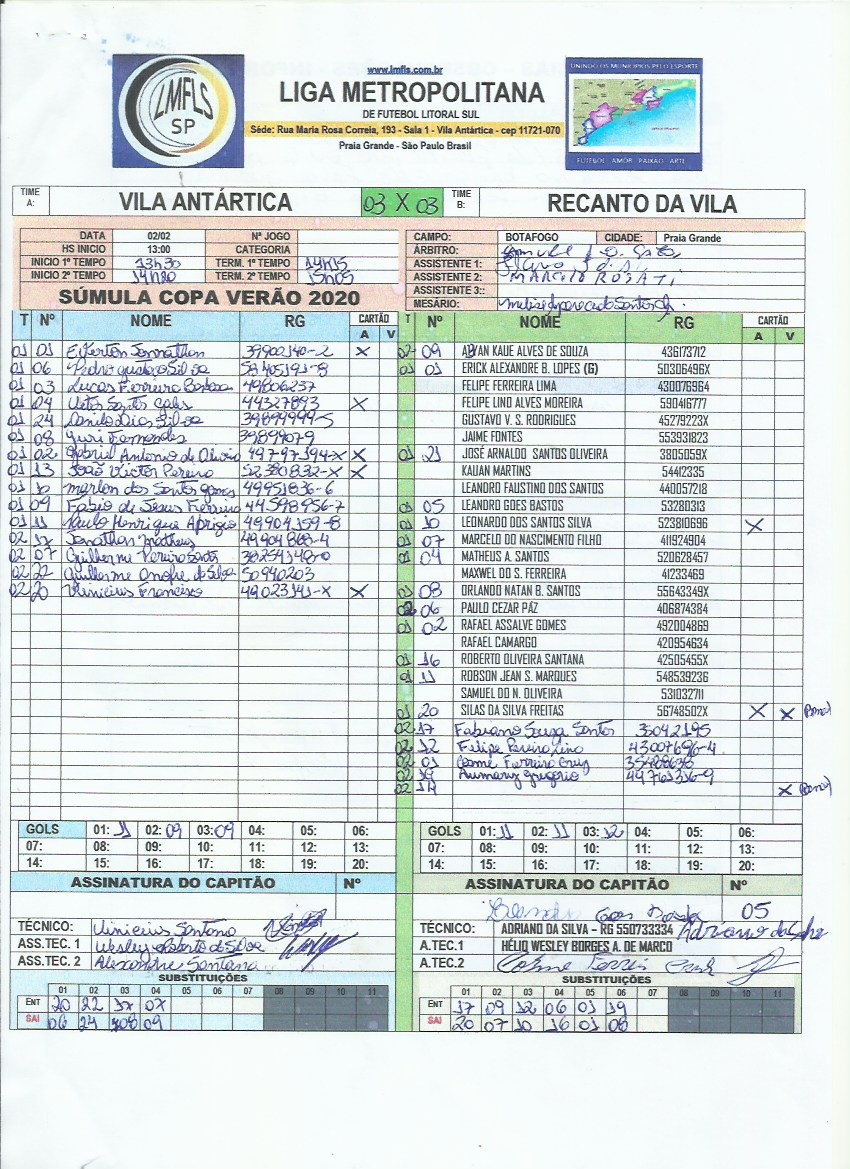 LMFLS
SP
www.lmfls.com.br
LIGA METROPOLITANA
DE FUTEBOL LITORAL SUL
Séde: Rua Maria Rosa Correia, 193 - Sala 1 - Vila Antártica - cep 11721-070
Praia Grande - São Paulo Brasil
UNINDO OS MUNICIPIOS PELO ESPORTE
FUTEBOL AMOR PAIXAO ARTE
TIME A: VILA ANTÁRTICA 03 X 03 TIME B: RECANTO DA VILA
DATA 02/02 Nº JOGO
HS INICIO 13:00 CATEGORIA
INICIO 1º TEMPO 13h30 TERM. 1º TEMPO 14h15
INICIO 2º TEMPO 14h20 TERM. 2º TEMPO 15h05
SÚMULA COPA VERÃO 2020
CAMPO: BOTAFOGO CIDADE: Praia Grande
ÁRBITRO:
ASSISTENTE 1:
ASSISTENTE 2: MARCIO ROSATI
ASSISTENTE 3::
MESÁRIO:
T Nº NOME RG CARTÃO A V
01 01 Everton Jonnathan 39900140-2 X
01 06 Pedro gustavo Silva 58405191-8
01 03 Lucas Ferreira Barbosa 49806237
01 04 Santos 44327893 X
01 24 Danilo Dias Silva 39899999-5
01 08 Yuri Fernandes 39899079
01 02 Gabriel Antonio de Oliveira 49797394-X X
01 13 João Victor Pereira 52380832-X X
01 10 marlon dos Santos 49951836-6
01 09 Fabio de Jesus Ferreira 44598956-7
01 11 Paulo Henrique Aprigio 49904159-8
02 17 Jonathan Matheus 49904868-4
02 07 Guilherme Pereira Santos 38254148-0
02 22 Guilherme Onofre da Silva 50940203
02 20 Vinicius Francisco 49023141-X X
T Nº NOME RG CARTÃO A V
02 09 ALVAN KAUE ALVES DE SOUZA 436173712
01 01 ERICK ALEXANDRE B. LOPES (G) 50306496X
FELIPE FERREIRA LIMA 430076964
FELIPE LINO ALVES MOREIRA 590416777
GUSTAVO V. S. RODRIGUES 45279223X
JAIME FONTES 553931823
01 21 JOSÉ ARNALDO SANTOS OLIVEIRA 3805059X
KAUAN MARTINS 54412335
LEANDRO FAUSTINO DOS SANTOS 440057218
01 05 LEANDRO GOES BASTOS 53280313
01 10 LEONARDO DOS SANTOS SILVA 523810696 X
01 07 MARCELO DO NASCIMENTO FILHO 411924904
01 04 MATHEUS A. SANTOS 520628457
MAXWEL DO S. FERREIRA 41233469
01 08 ORLANDO NATAN B. SANTOS 55643349X
02 06 PAULO CEZAR PÁZ 406874384
01 02 RAFAEL ASSALVE GOMES 492004869
RAFAEL CAMARGO 420954634
01 16 ROBERTO OLIVEIRA SANTANA 42505455X
01 11 ROBSON JEAN S. MARQUES 548539236
SAMUEL DO N. OLIVEIRA 531032711
01 20 SILAS DA SILVA FREITAS 56748502X X X
02 17 Fabiano Souza Santos 35042195
02 12 Felipe Pereira Lino 43007696-4
02 01 Cosme Ferreira Cruz
02 19 gregorio 49761316-9
02 14 X
GOLS 01: 11 02: 09 03: 09 04: 05: 06:
07: 08: 09: 10: 11: 12: 13:
14: 15: 16: 17: 18: 19: 20:
GOLS 01: 11 02: 11 03: 12 04: 05: 06:
07: 08: 09: 10: 11: 12: 13:
14: 15: 16: 17: 18: 19: 20:
ASSINATURA DO CAPITÃO Nº
ASSINATURA DO CAPITÃO Nº
05
TÉCNICO: Vinicius Santana
ASS.TEC. 1 Wesley Roberto da Silva
ASS.TEC. 2 Alexandre Santana
TÉCNICO: ADRIANO DA SILVA - RG 550733334 Adriano da Silva
A.TEC.1 HÉLIO WESLEY BORGES A. DE MARCO
A.TEC.2 Cosme Ferreira Cruz
SUBSTITUIÇÕES
01 02 03 04 05 06 07 08 09 10 11
ENT 20 22 17 07
SAI 06 24 08 09
SUBSTITUIÇÕES
01 02 03 04 05 06 07 08 09 10 11
ENT 17 09 12 06 01 19
SAI 20 07 10 16 01 08